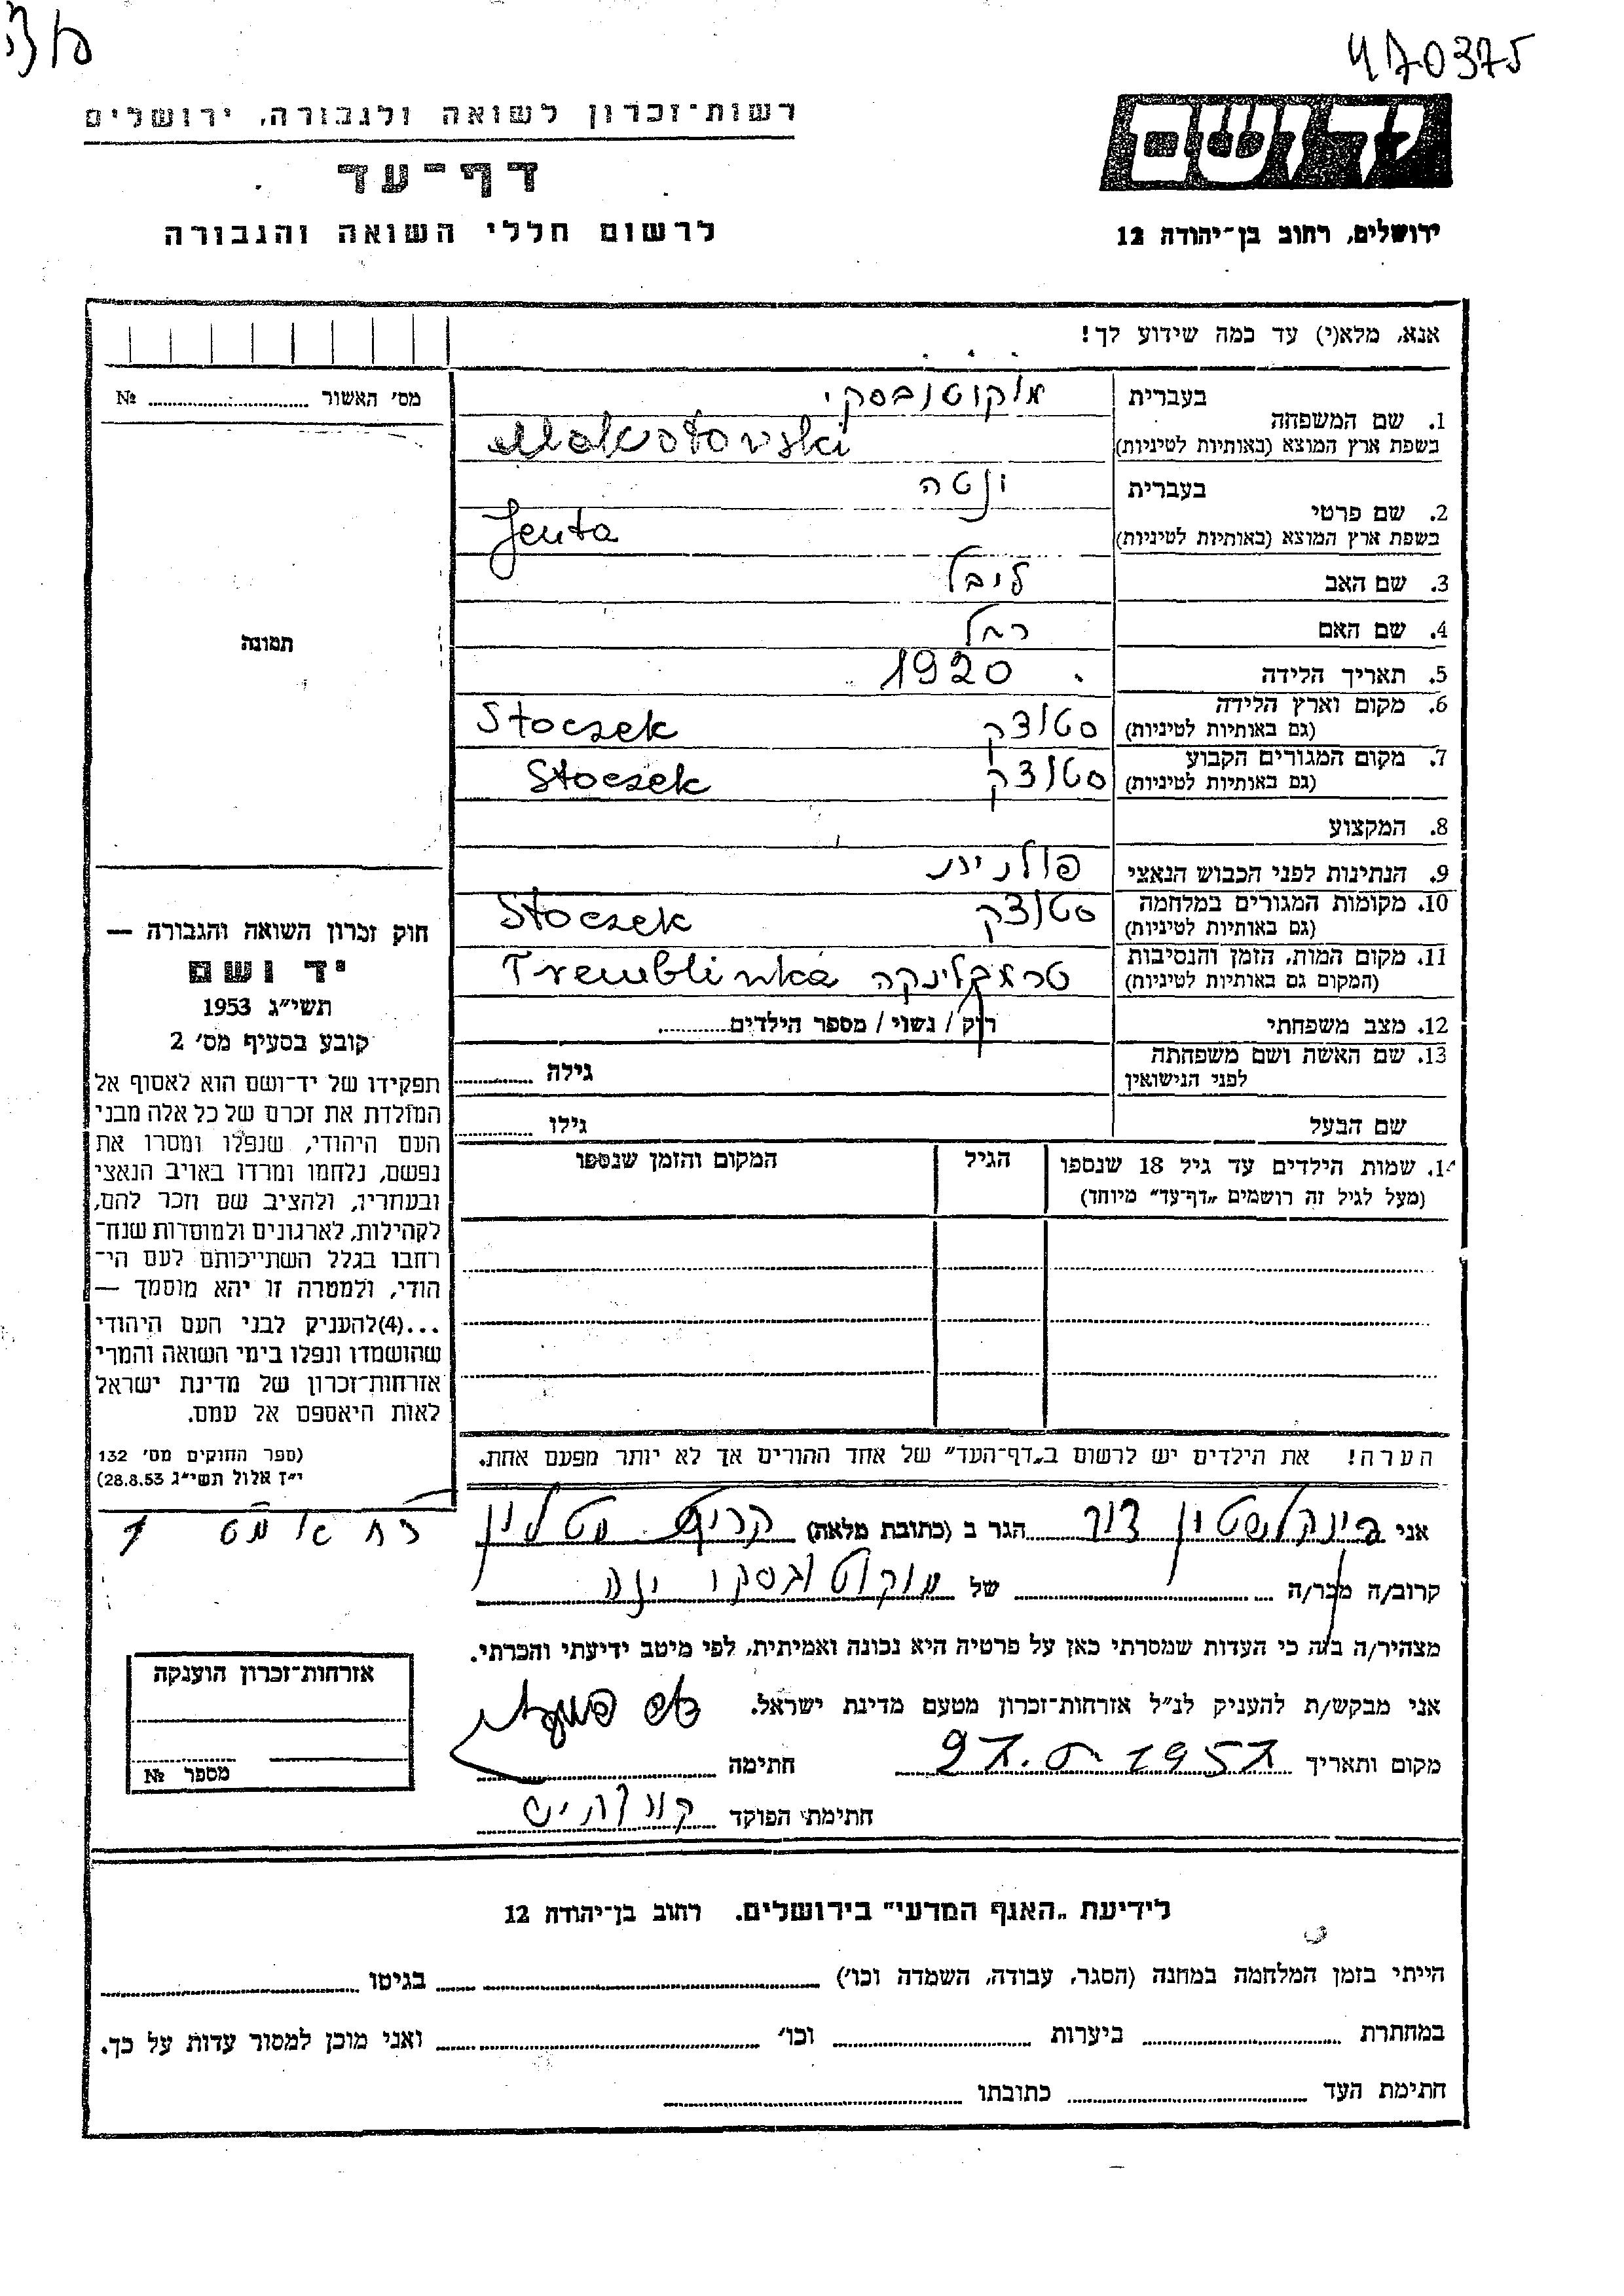 470375
רשות־זכרון לשואה ולגבורה, ירושלים
ידושם
דף־עד
לרשום חללי השואה והגבורה
ירושלים, רחוב בן־יהודה 12
אנא, מלא(י) עד כמה שידוע לך!
מס׳ האשור № 
בעברית מוקוטובסקי
1. שם המשפחה
בשפת ארץ המוצא (באותיות לטיניות) Mokotovski
בעברית ינטה
2. שם פרטי
בשפת ארץ המוצא (באותיות לטיניות) Jenta
3. שם האב ליבל
4. שם האם רחל
5. תאריך הלידה 1920
6. מקום וארץ הלידה
(גם באותיות לטיניות) סטוצק Stoczek
7. מקום המגורים הקבוע
(גם באותיות לטיניות) סטוצק Stoczek
8. המקצוע
9. הנתינות לפני הכבוש הנאצי פולנית
10. מקומות המגורים במלחמה
(גם באותיות לטיניות) סטוצק Stoczek
11. מקום המות, הזמן והנסיבות
(המקום גם באותיות לטיניות) טרמבלינקה Tremblinka
12. מצב משפחתי רוק / נשוי / מספר הילדים
13. שם האשה ושם משפחתה
לפני הנישואין גילה
שם הבעל גילו
14. שמות הילדים עד גיל 18 שנספו הגיל המקום והזמן שנספו
(מעל לגיל זה רושמים „דף־עד״ מיוחד)
הערה! את הילדים יש לרשום ב„דף־העד״ של אחד ההורים אך לא יותר מפעם אחת.
תמונה
חוק זכרון השואה והגבורה —
יד ושם
תשי״ג 1953
קובע בסעיף מס׳ 2
תפקידו של יד־ושם הוא לאסוף אל
המולדת את זכרם של כל אלה מבני
העם היהודי, שנפלו ומסרו את
נפשם, נלחמו ומרדו באויב הנאצי
ובעוזריו, ולהציב שם וזכר להם,
לקהילות, לארגונים ולמוסדות שנח־
רבו בגלל השתייכותם לעם הי־
הודי, ולמטרה זו יהא מוסמך —
...(4)להעניק לבני העם היהודי
שהושמדו ונפלו בימי השואה והמרי
אזרחות־זכרון של מדינת ישראל
לאות היאספם אל עמם.
(ספר החוקים מס׳ 132
י״ז אלול תשי״ג 28.8.53)
אני פינקלשטין דוד הגר ב (כתובת מלאה) קרית
קרוב/ה מכר/ה של מוקוטובסקי
מצהיר/ה בזה כי העדות שמסרתי כאן על פרטיה היא נכונה ואמיתית, לפי מיטב ידיעתי והכרתי.
אני מבקש/ת להעניק לנ״ל אזרחות־זכרון מטעם מדינת ישראל.
מקום ותאריך 1957 חתימה
חתימת הפוקד
אזרחות־זכרון הוענקה
מספר №
לידיעת „האגף המדעי״ בירושלים. רחוב בן־יהודה 12
הייתי בזמן המלחמה במחנה (הסגר, עבודה, השמדה וכו׳) בגיטו
במחתרת ביערות וכו׳ ואני מוכן למסור עדות על כך.
חתימת העד כתובתו